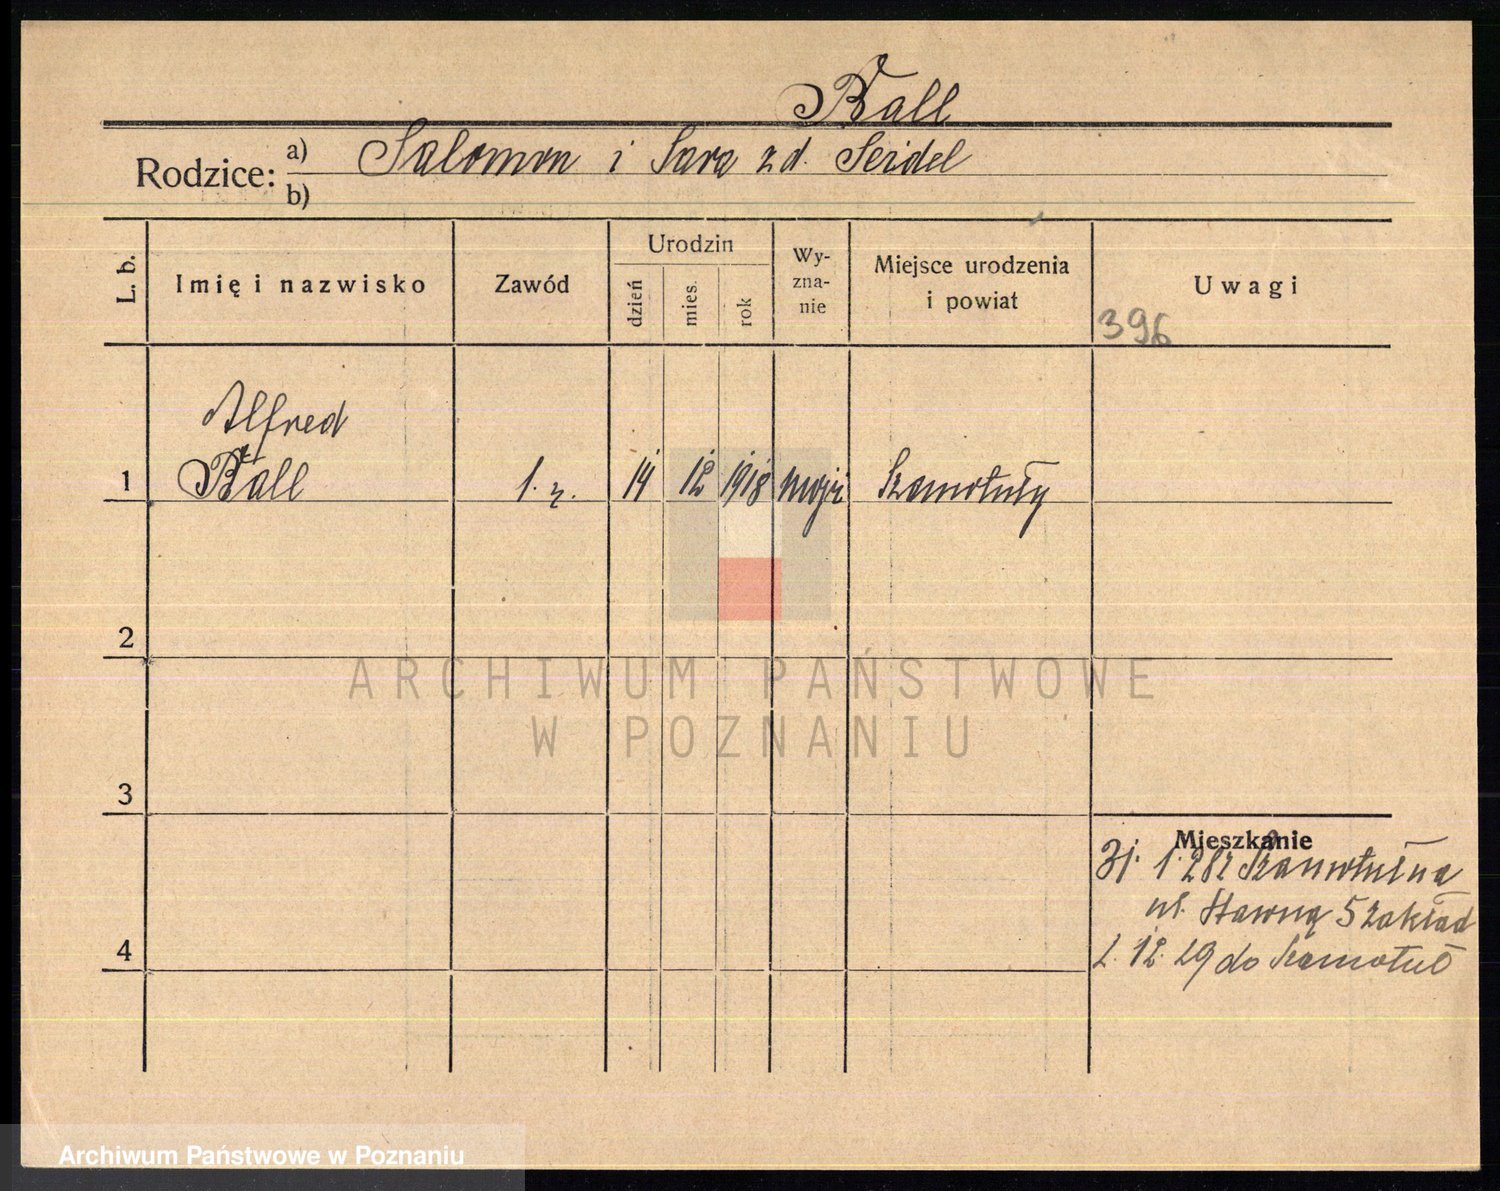 Ball
Rodzice: a) Salomon i Sara z d. Seidel
b)
L. b.
Imię i nazwisko
Zawód
Urodzin
dzień
mies.
rok
Wy-
zna-
nie
Miejsce urodzenia
i powiat
Uwagi
396
Alfred
1 Ball 14 12 1918 mojż Szamotuły
2
ARCHIWUM PAŃSTWOWE
W POZNANIU
3
Mieszkanie
31. 1. 28 z Szamotuł na
ul. Stawną 5 zakład
4
2. 12. 29 do Szamotuł
Archiwum Państwowe w Poznaniu